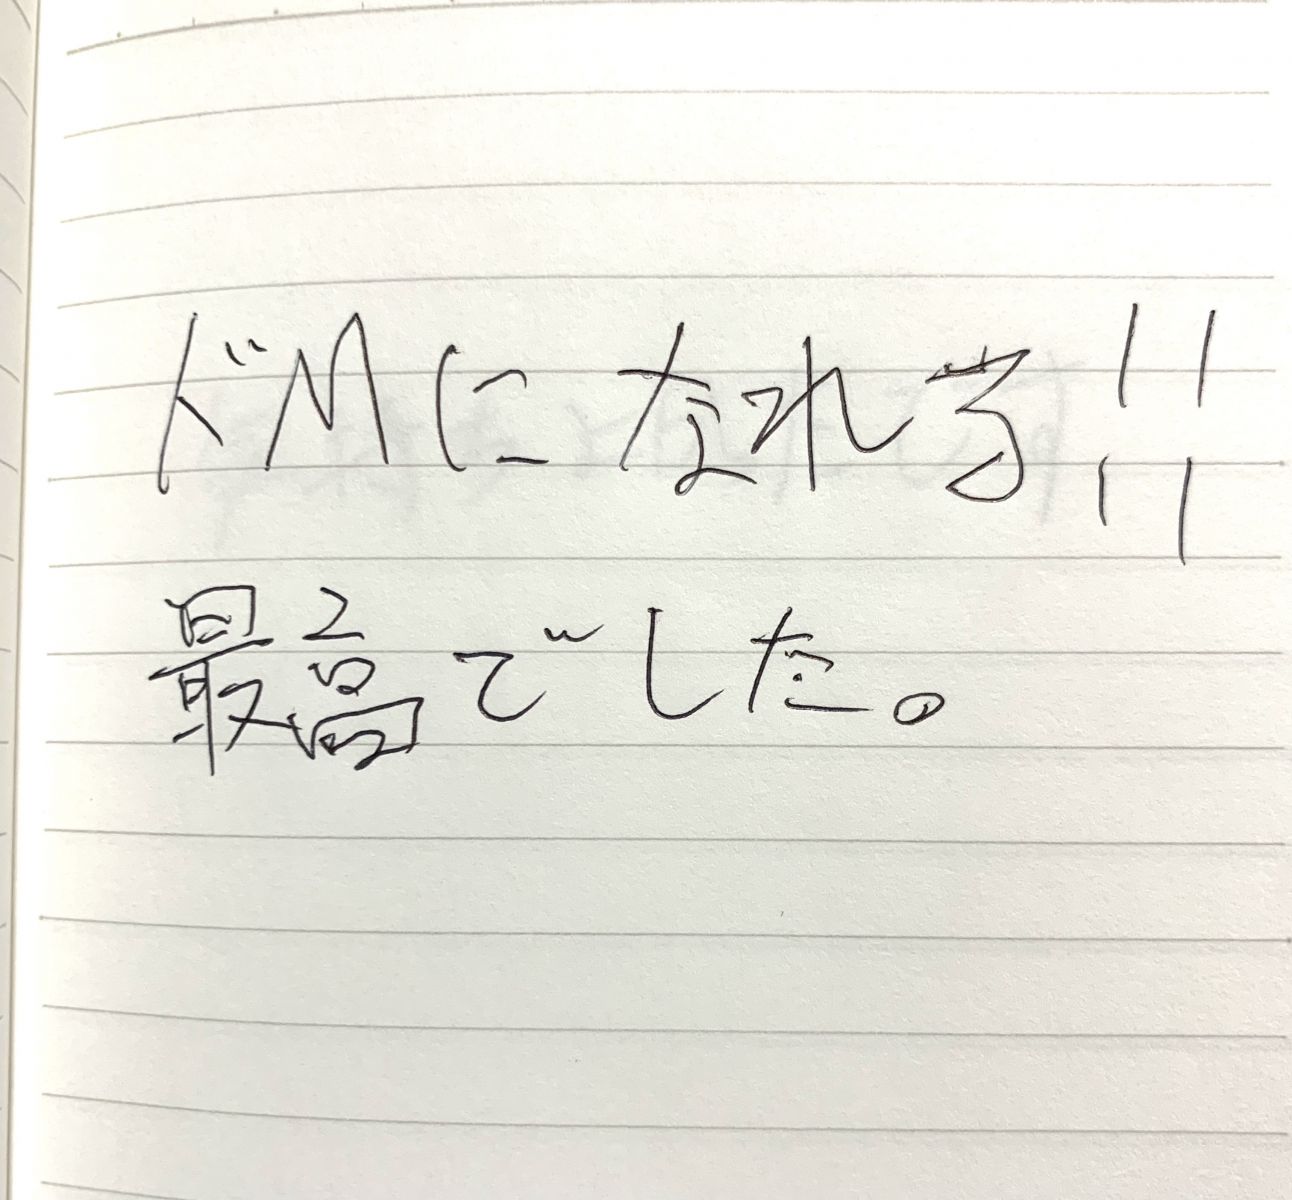 ドMになれる!!
最高でした。